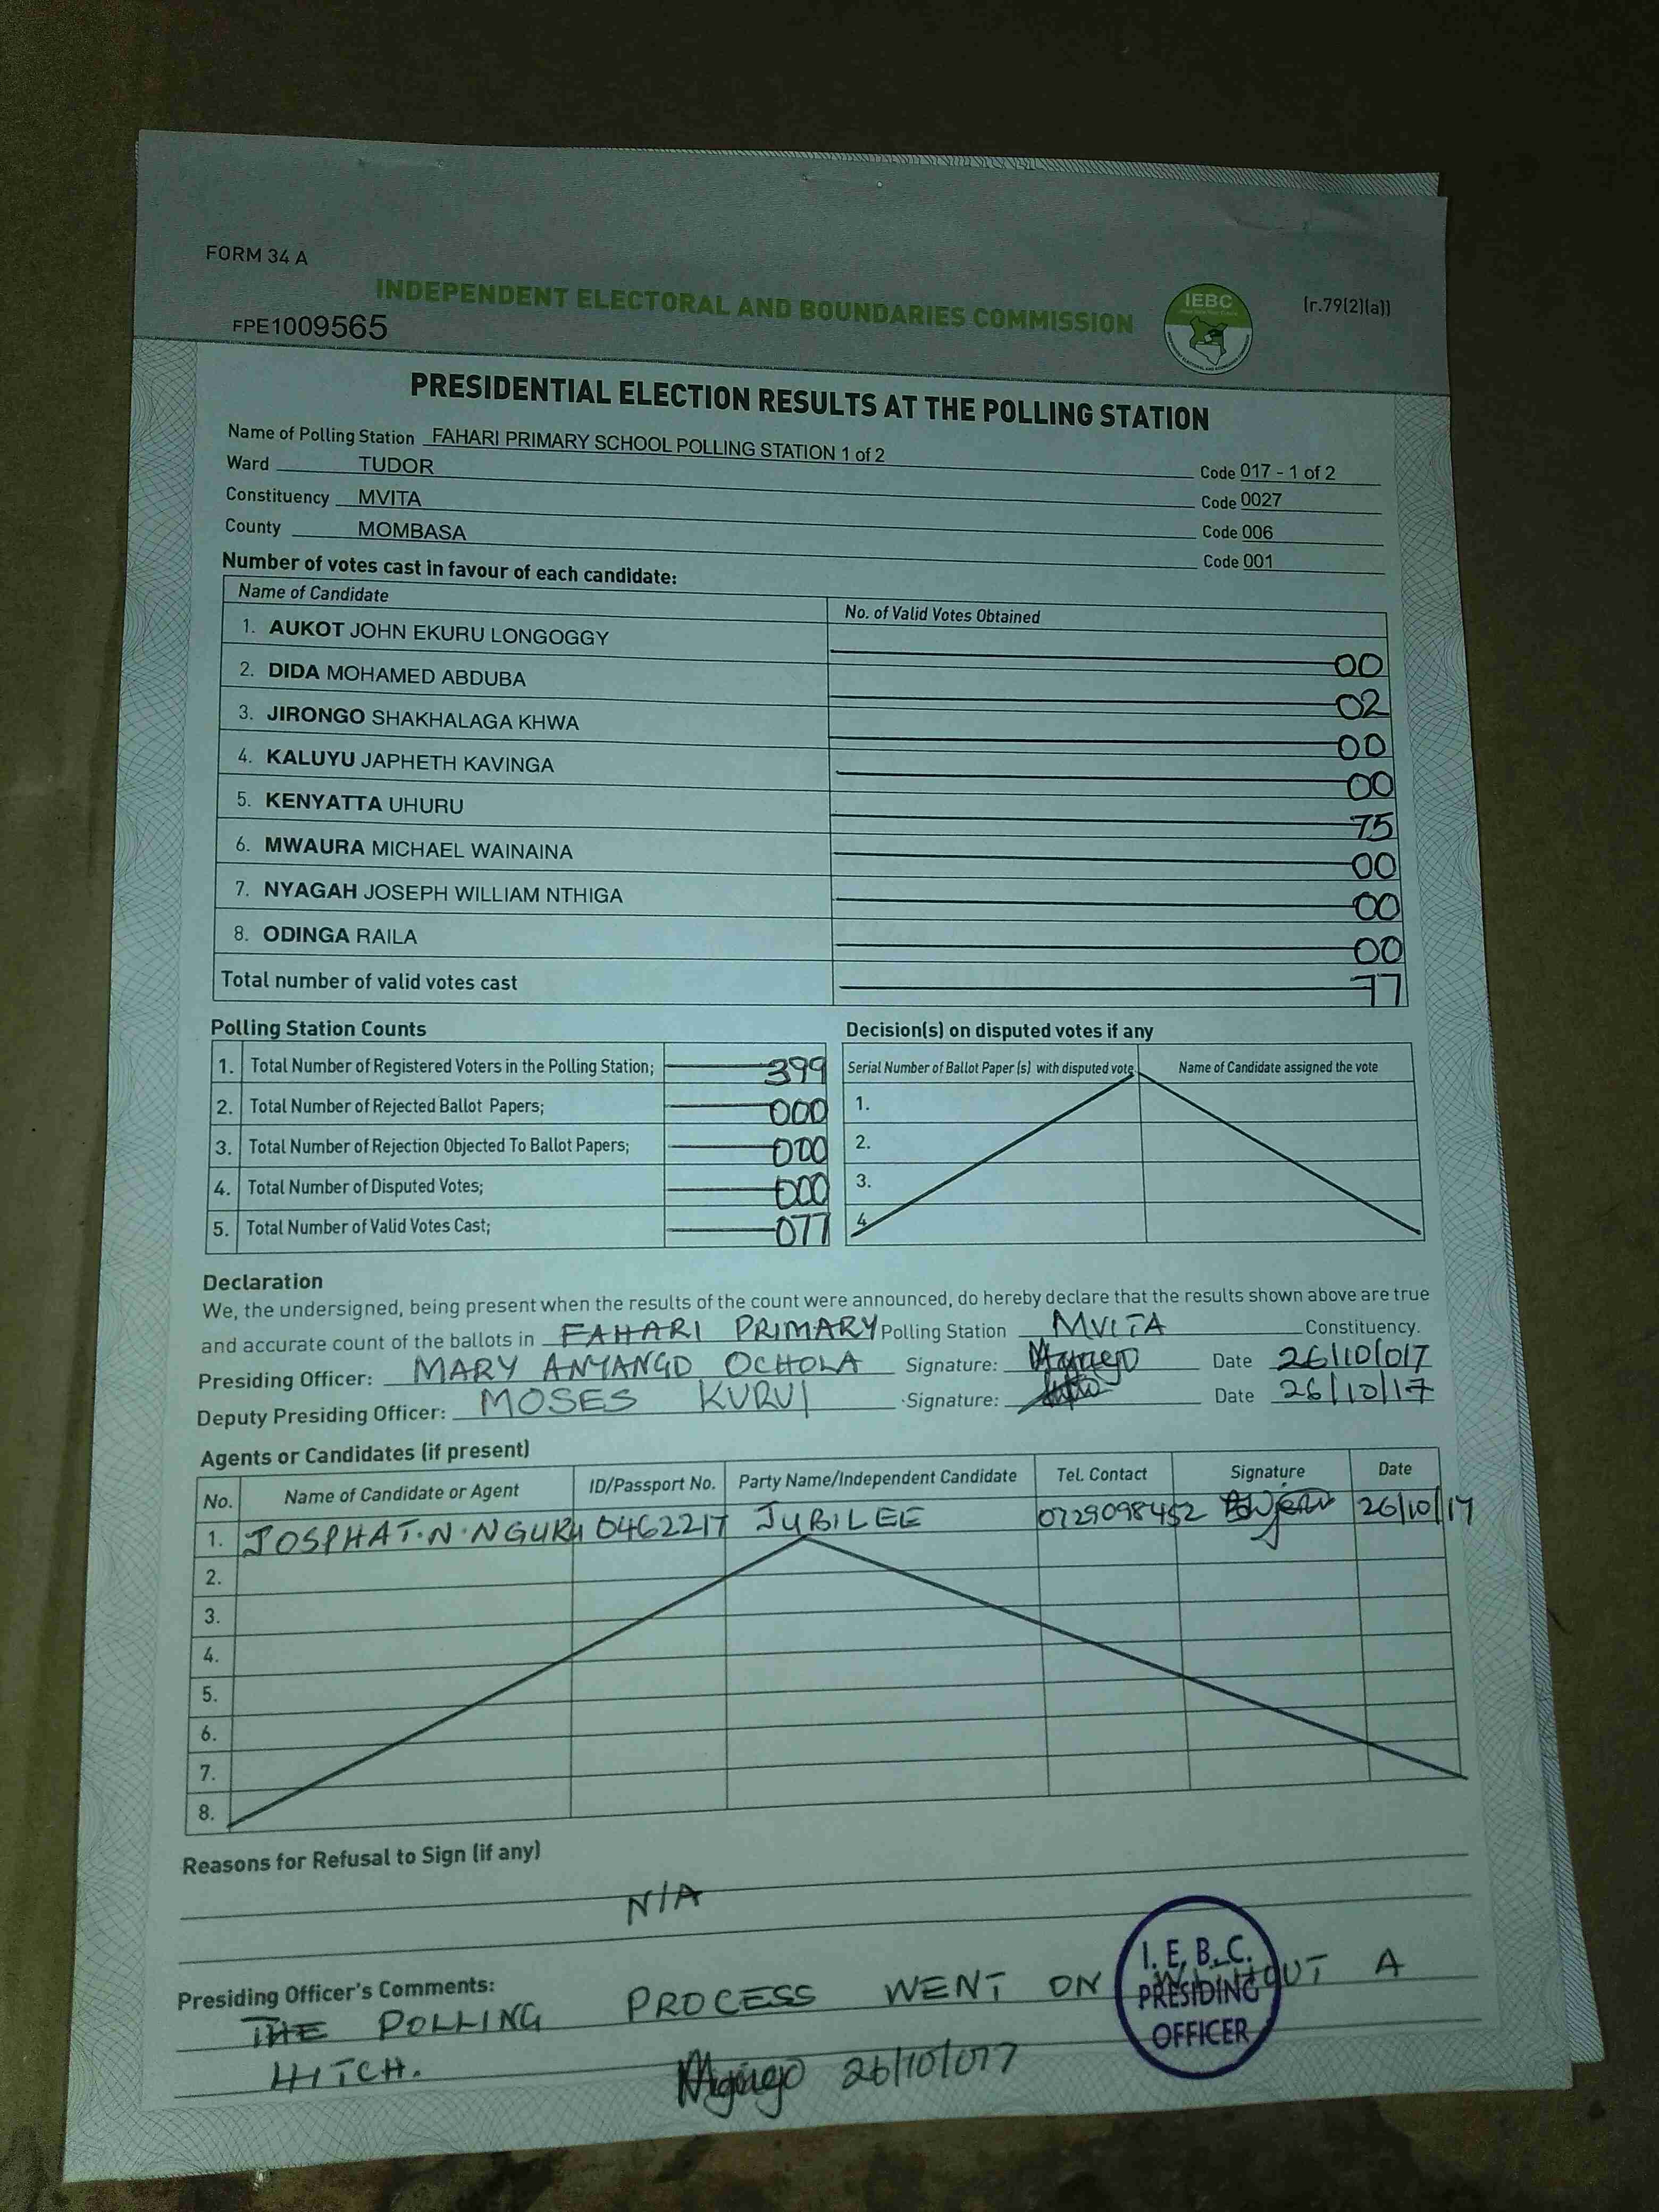 FORM 34 A
INDEPENDENT ELECTORAL AND BOUNDARIES COMMISSION
IEBC
(r.79(2)(a))
FPE1009565
PRESIDENTIAL ELECTION RESULTS AT THE POLLING STATION
Name of Polling Station FAHARI PRIMARY SCHOOL POLLING STATION 1 of 2 Code 017 - 1 of 2
Ward TUDOR Code 0027
Constituency MVITA Code 006
County MOMBASA Code 001
Number of votes cast in favour of each candidate:
Name of Candidate No. of Valid Votes Obtained
1. AUKOT JOHN EKURU LONGOGGY 00
2. DIDA MOHAMED ABDUBA 02
3. JIRONGO SHAKHALAGA KHWA 00
4. KALUYU JAPHETH KAVINGA 00
5. KENYATTA UHURU 75
6. MWAURA MICHAEL WAINAINA 00
7. NYAGAH JOSEPH WILLIAM NTHIGA 00
8. ODINGA RAILA 00
Total number of valid votes cast 77
Polling Station Counts
1. Total Number of Registered Voters in the Polling Station; 399
2. Total Number of Rejected Ballot Papers; 000
3. Total Number of Rejection Objected To Ballot Papers; 000
4. Total Number of Disputed Votes; 000
5. Total Number of Valid Votes Cast; 077
Decision(s) on disputed votes if any
Serial Number of Ballot Paper (s) with disputed vote Name of Candidate assigned the vote
1.
2.
3.
4
Declaration
We, the undersigned, being present when the results of the count were announced, do hereby declare that the results shown above are true
and accurate count of the ballots in FAHARI PRIMARY Polling Station MVITA Constituency.
Presiding Officer: MARY ANYANGO OCHOLA Signature: Date 26/10/017
Deputy Presiding Officer: MOSES KURUI Signature: Date 26/10/17
Agents or Candidates (if present)
No. Name of Candidate or Agent ID/Passport No. Party Name/Independent Candidate Tel. Contact Signature Date
1. JOSPHAT.N.NGURU 0462217 JUBILEE 0729098452 26/10/17
2.
3.
4.
5.
6.
7.
8.
Reasons for Refusal to Sign (if any)
N/A
Presiding Officer's Comments:
THE POLLING PROCESS WENT ON WITHOUT A
HITCH.
26/10/017
I.E.B.C.
PRESIDING
OFFICER